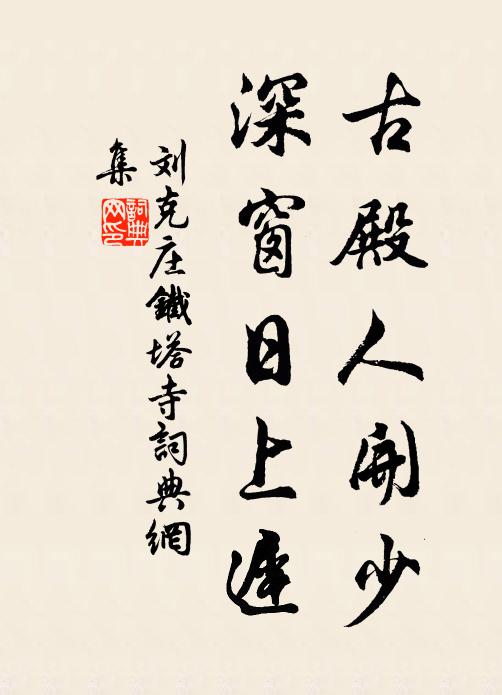 古殿人開少
深窗日上遲
刘克庄鐵塔寺詞典網
集
詞典
网印